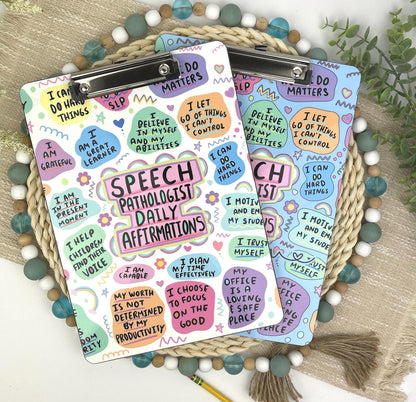 I CAN
DO HARD
THINGS
SLP
I
BELIEVE
IN MYSELF
AND MY
ABILITIES
I DO
MATTERS
I LET
GO OF THINGS
I CAN'T
CONTROL
I AM
GRATEFUL
I AM
A GREAT
LEARNER
I CAN
DO
HARD
THINGS
I AM
IN THE
PRESENT
MOMENT
SPEECH
PATHOLOGIST
DAILY
AFFIRMATIONS
I MOTIVATE
AND EM
MY STUDE
I HELP
CHILDREN
FIND THEIR
VOICE
I TRUST
MYSELF
I AM
CAPABLE
I PLAN
MY TIME
EFFECTIVELY
MY
OFFICE
IS A
LOVING
& SAFE
PLACE
MY WORTH
IS NOT
DETERMINED
BY MY
PRODUCTIVITY
I CHOOSE
TO FOCUS
ON THE
GOOD
DO
MATTERS
I LET
GO OF THINGS
I CAN'T
CONTROL
I CAN
DO
HARD
THINGS
I MOTIV
AND EM
MY STUD
I TRUST
MYSELF
MY
OFFICE
IS A
LOVING
& SAFE
PLACE